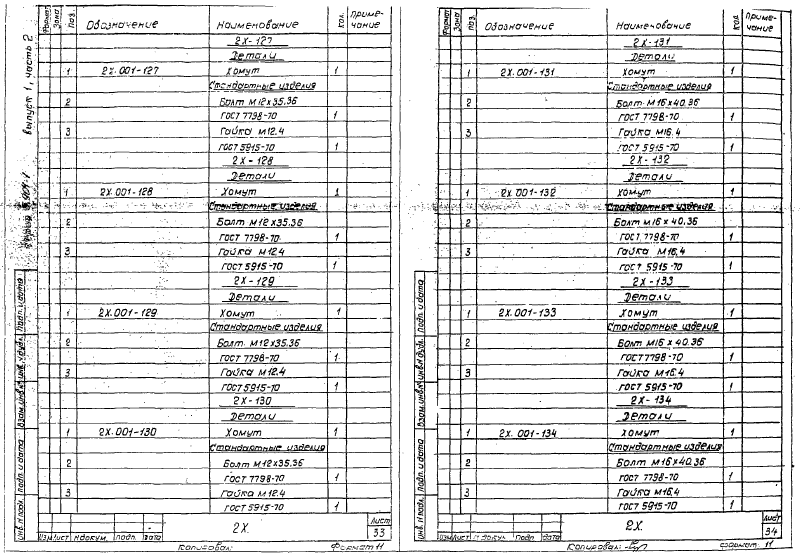 Выпуск 1, часть 2
Формат Зона Поз. Обозначение Наименование Кол. Примечание
2Х-127
Детали
1 2Х.001-127 Хомут 1
Стандартные изделия
2 Болт М12х35.36
ГОСТ 7798-70 1
3 Гайка М12.4
ГОСТ 5915-70 1
2Х-128
Детали
1 2Х.001-128 Хомут 1
Стандартные изделия
2 Болт М12х35.36
ГОСТ 7798-70 1
3 Гайка М12.4
ГОСТ 5915-70 1
2Х-129
Детали
1 2Х.001-129 Хомут 1
Стандартные изделия
2 Болт М12х35.36
ГОСТ 7798-70 1
3 Гайка М12.4
ГОСТ 5915-70 1
2Х-130
Детали
1 2Х.001-130 Хомут 1
Стандартные изделия
2 Болт М12х35.36
ГОСТ 7798-70 1
3 Гайка М12.4
ГОСТ 5915-70 1
Инв. N подл. Подп. и дата Взам. инв. N Инв. N дубл. Подп. и дата
Изм Лист N докум. Подп. Дата 2Х. Лист 33
Копировал: Формат 11
Формат Зона Поз. Обозначение Наименование Кол. Примечание
2Х-131
Детали
1 2Х.001-131 Хомут 1
Стандартные изделия
2 Болт М16х40.36
ГОСТ 7798-70 1
3 Гайка М16.4
ГОСТ 5915-70 1
2Х-132
Детали
1 2Х.001-132 Хомут 1
Стандартные изделия
2 Болт М16х40.36
ГОСТ 7798-70 1
3 Гайка М16.4
ГОСТ 5915-70 1
2Х-133
Детали
1 2Х.001-133 Хомут 1
Стандартные изделия
2 Болт М16х40.36
ГОСТ 7798-70 1
3 Гайка М16.4
ГОСТ 5915-70 1
2Х-134
Детали
1 2Х.001-134 Хомут 1
Стандартные изделия
2 Болт М16х40.36
ГОСТ 7798-70 1
3 Гайка М16.4
ГОСТ 5915-70 1
Инв. N подл. Подп. и дата Взам. инв. N Инв. N дубл. Подп. и дата
Изм Лист N докум. Подп. Дата 2Х. Лист 34
Копировал: Формат 11